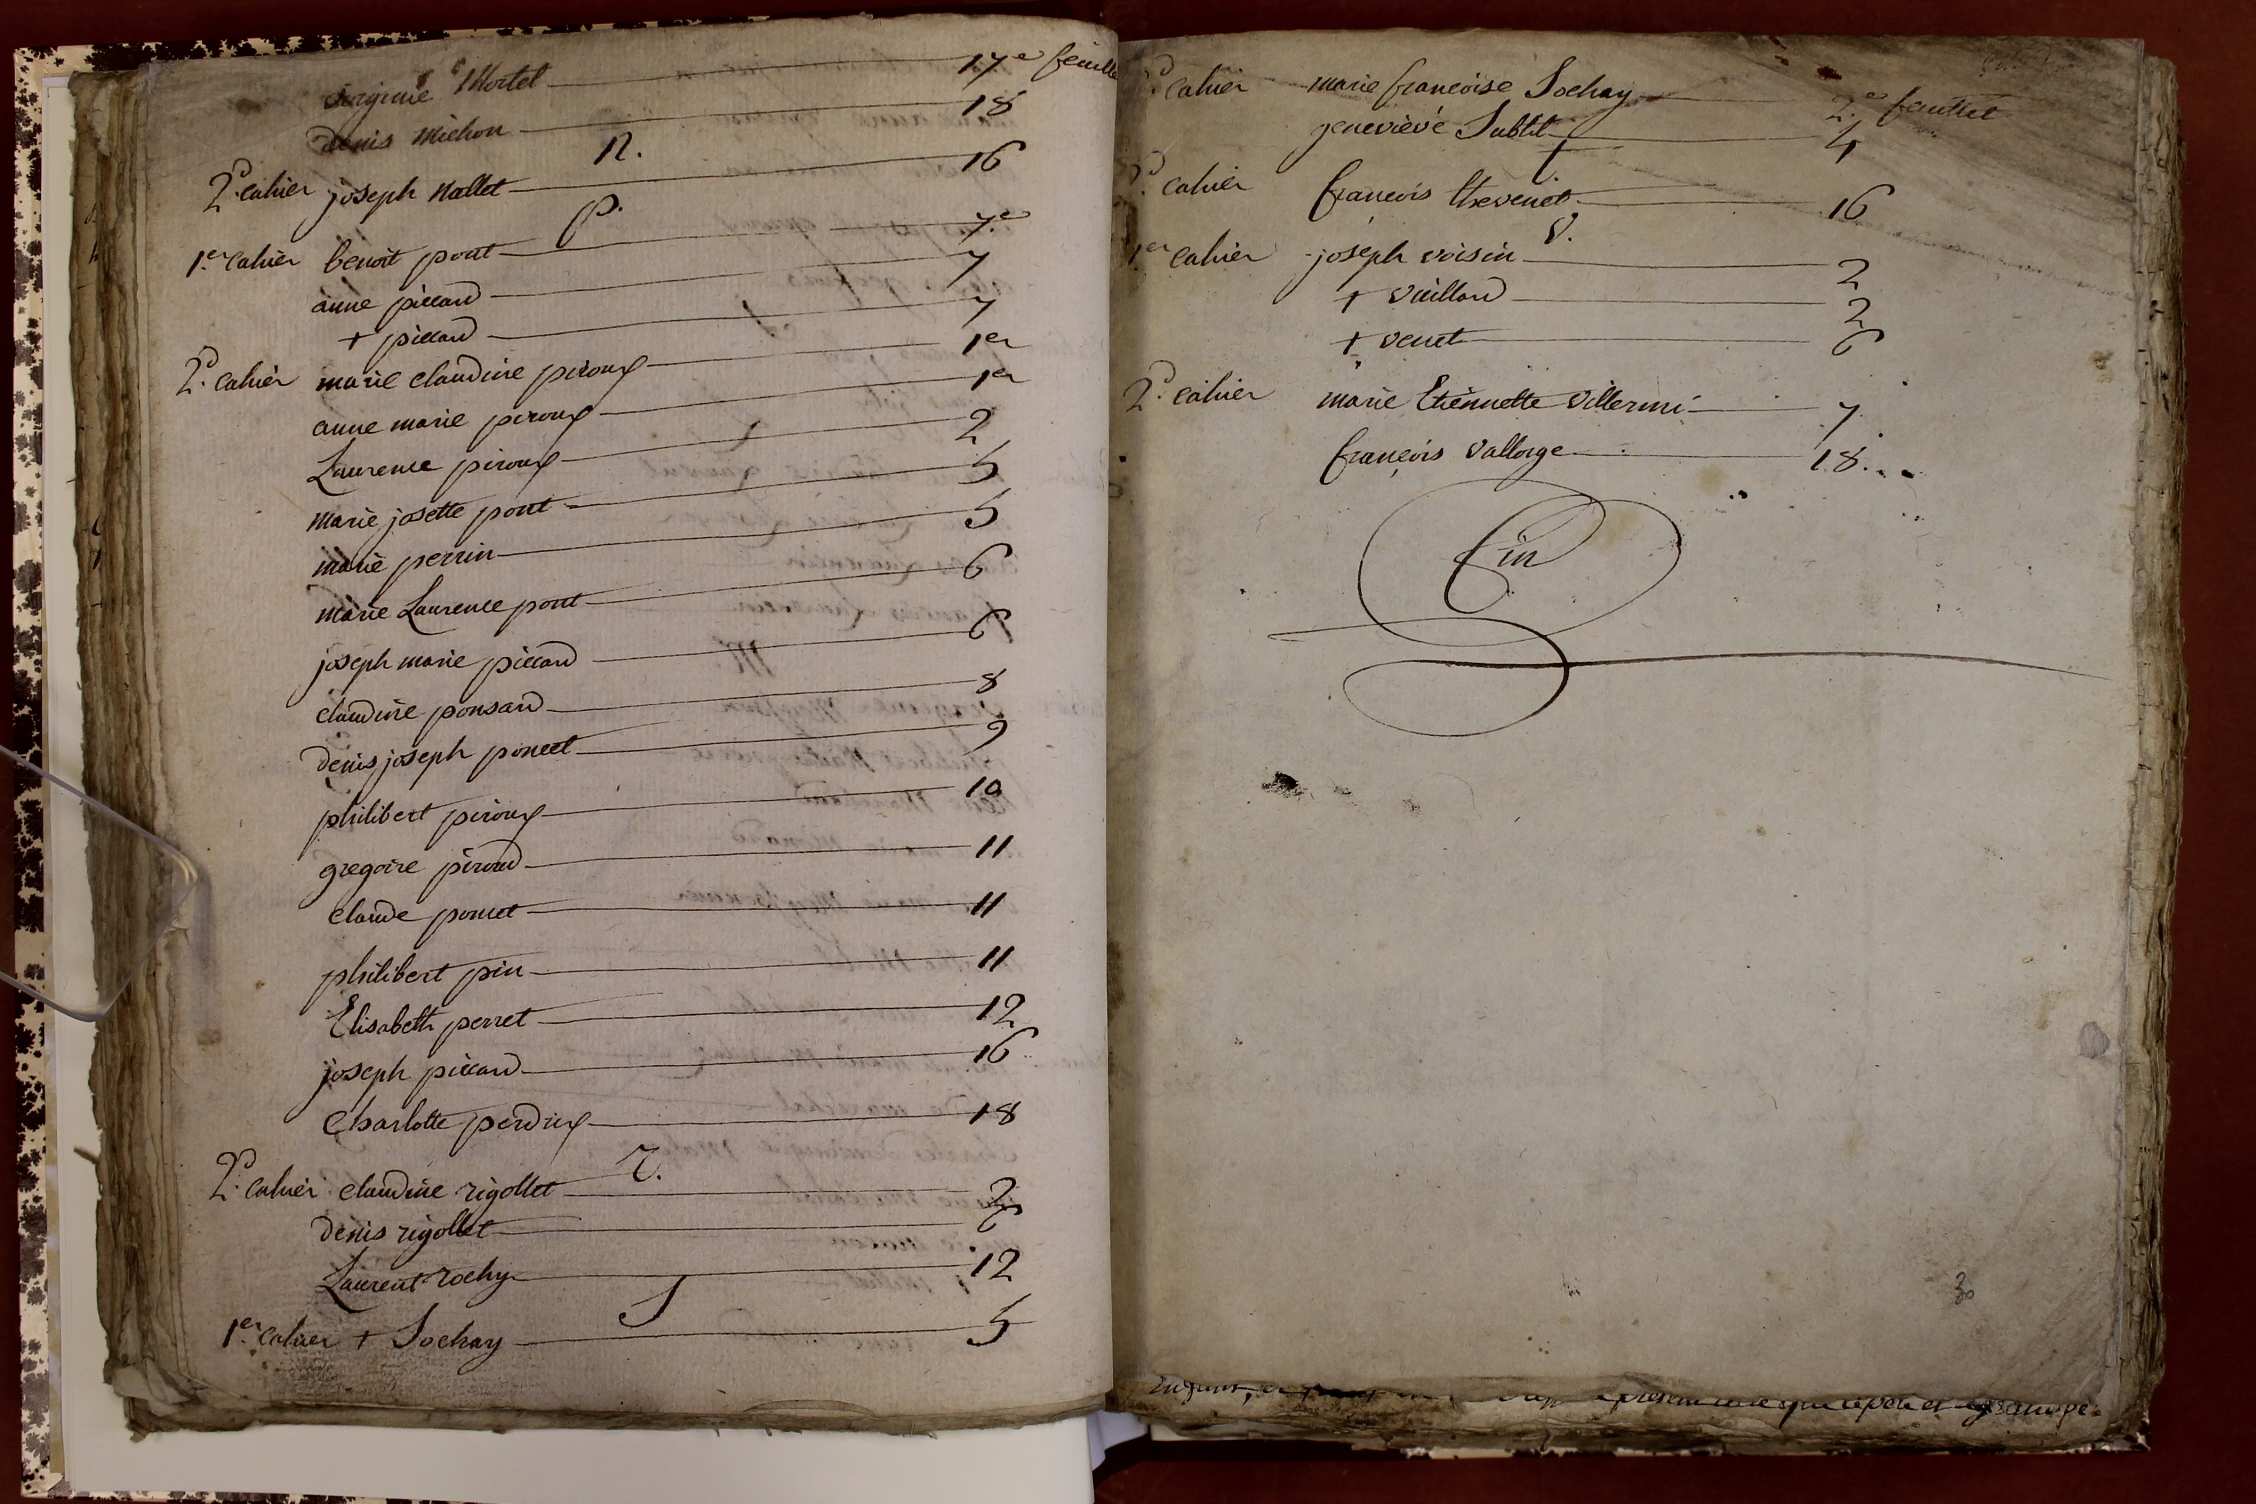 virginie Mortel 17e feuille
denis michon 18
N.
2d. cahier joseph Nallet 16
P.
1er. cahier benoit pont 7e
anne piccard 7
+ piccard 7
2d. cahier marie claudine piroux 1er
anne marie piroux 1er
Laurence piroux 2
marie josette pont 5
marie perrin 5
marie Laurence pont 6
joseph marie piccard 6
claudine ponsard 8
denis joseph poncet 9
philibert piroux 10
gregoire piroud 11
claude poncet 11
philibert pin 11
Elisabeth perret 12
joseph piccard 16
Charlotte perdrix 18
r.
2d. cahier claudine rigollet 2
denis rigollet 6
Laurent rochy 12
S
1er. cahier + Sochay 5
d. cahier marie francoise Sochay 2e. feuillet
genevieve Sublet 4
t.
d. cahier francois thevenet 16
V.
1er cahier joseph voisin 2
+ vuillard 2
+ venet 6
2d. cahier marie Etiennette villermi 7
françois vallorge 18
Fin
30